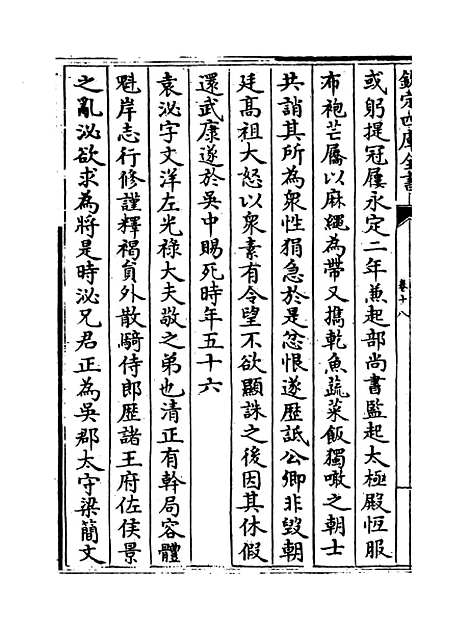 欽定四庫全書
卷十八
或躬提冠屨永定二年兼起部尚書監起太極殿恒服
布袍芒屩以麻繩為帶又擕乾魚蔬菜飯獨噉之朝士
共誚其所為衆性狷急於是忿恨遂歴詆公卿非毀朝
廷高祖大怒以衆素有令望不欲顯誅之後因其休假
還武康遂於吳中賜死時年五十六
袁泌字文洋左光祿大夫敬之弟也清正有幹局容體
魁岸志行修謹釋褐貟外散騎侍郎歴諸王府佐侯景
之亂泌欲求為將是時泌兄君正為吳郡太守梁簡文